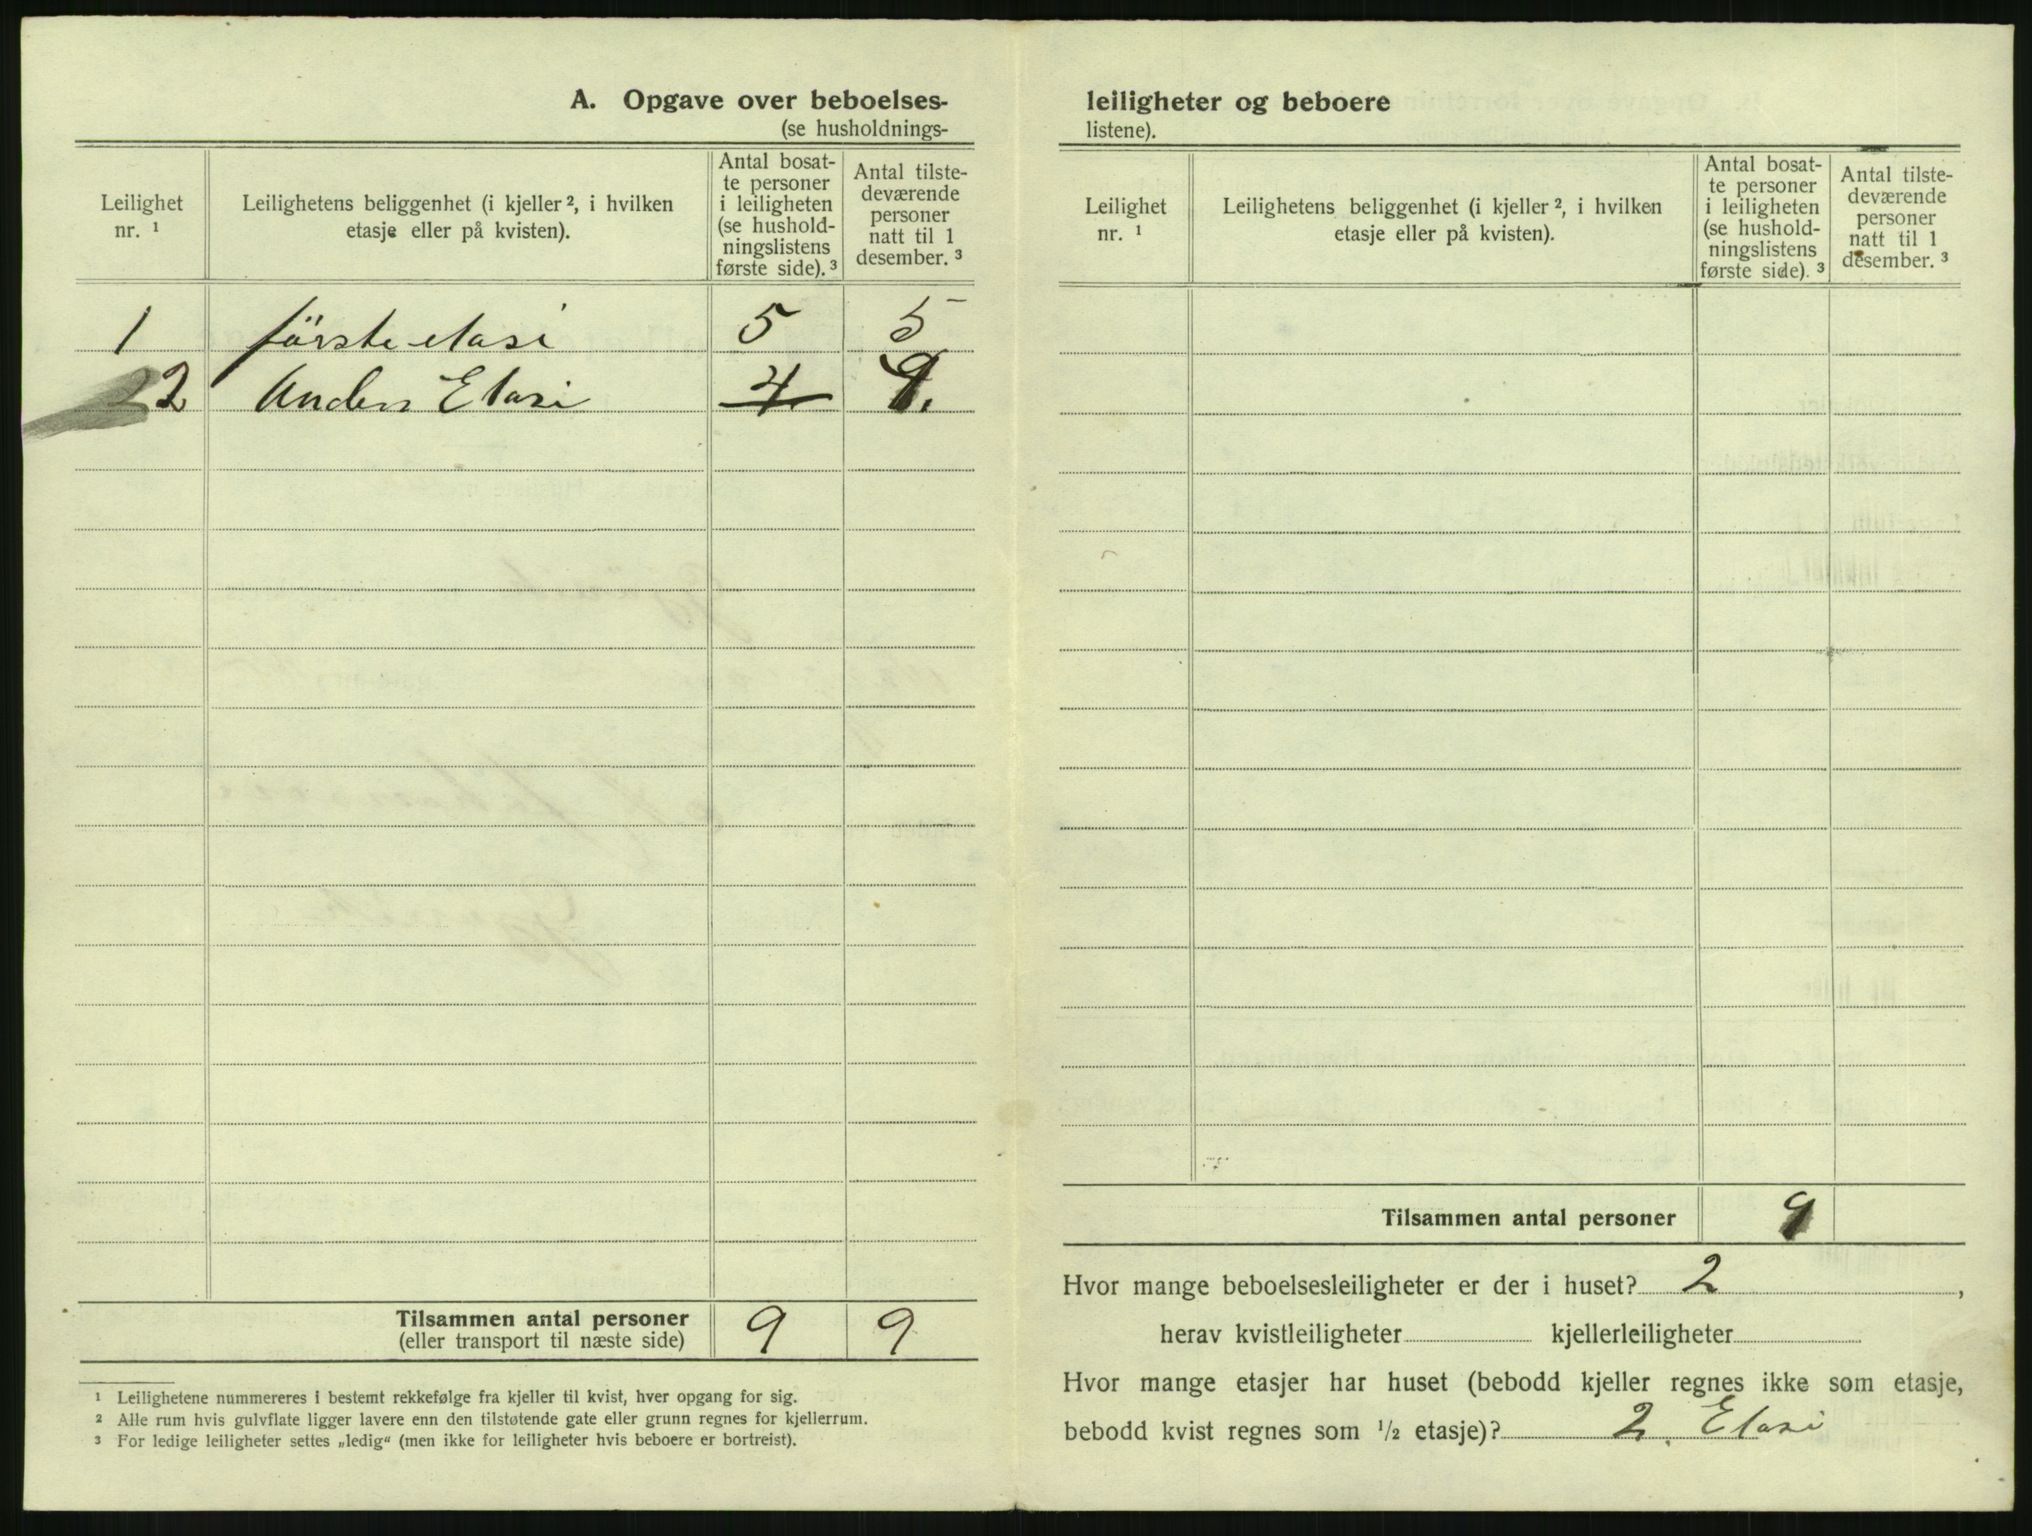 A. Opgave over beboelses-
(se husholdnings-
Leilighet nr. ¹
Leilighetens beliggenhet (i kjeller ², i hvilken etasje eller på kvisten).
Antal bosat-
te personer
i leiligheten
(se hushold-
ningslistens
første side). ³
Antal tilste-
deværende
personer
natt til 1
desember. ³
1 förste etasi 5 5
2 Anden Etasi 4 4.
Tilsammen antal personer 9 9
(eller transport til næste side)
¹ Leilighetene nummereres i bestemt rekkefølge fra kjeller til kvist, hver opgang for sig.
² Alle rum hvis gulvflate ligger lavere enn den tilstøtende gate eller grunn regnes for kjellerrum.
³ For ledige leiligheter settes „ledig“ (men ikke for leiligheter hvis beboere er bortreist).
leiligheter og beboere
listene).
Leilighet nr. ¹
Leilighetens beliggenhet (i kjeller ², i hvilken etasje eller på kvisten).
Antal bosat-
te personer
i leiligheten
(se hushold-
ningslistens
første side). ³
Antal tilste-
deværende
personer
natt til 1
desember. ³
Tilsammen antal personer 9
Hvor mange beboelsesleiligheter er der i huset? 2,
herav kvistleiligheter kjellerleiligheter
Hvor mange etasjer har huset (bebodd kjeller regnes ikke som etasje,
bebodd kvist regnes som ½ etasje)? 2. Etasi